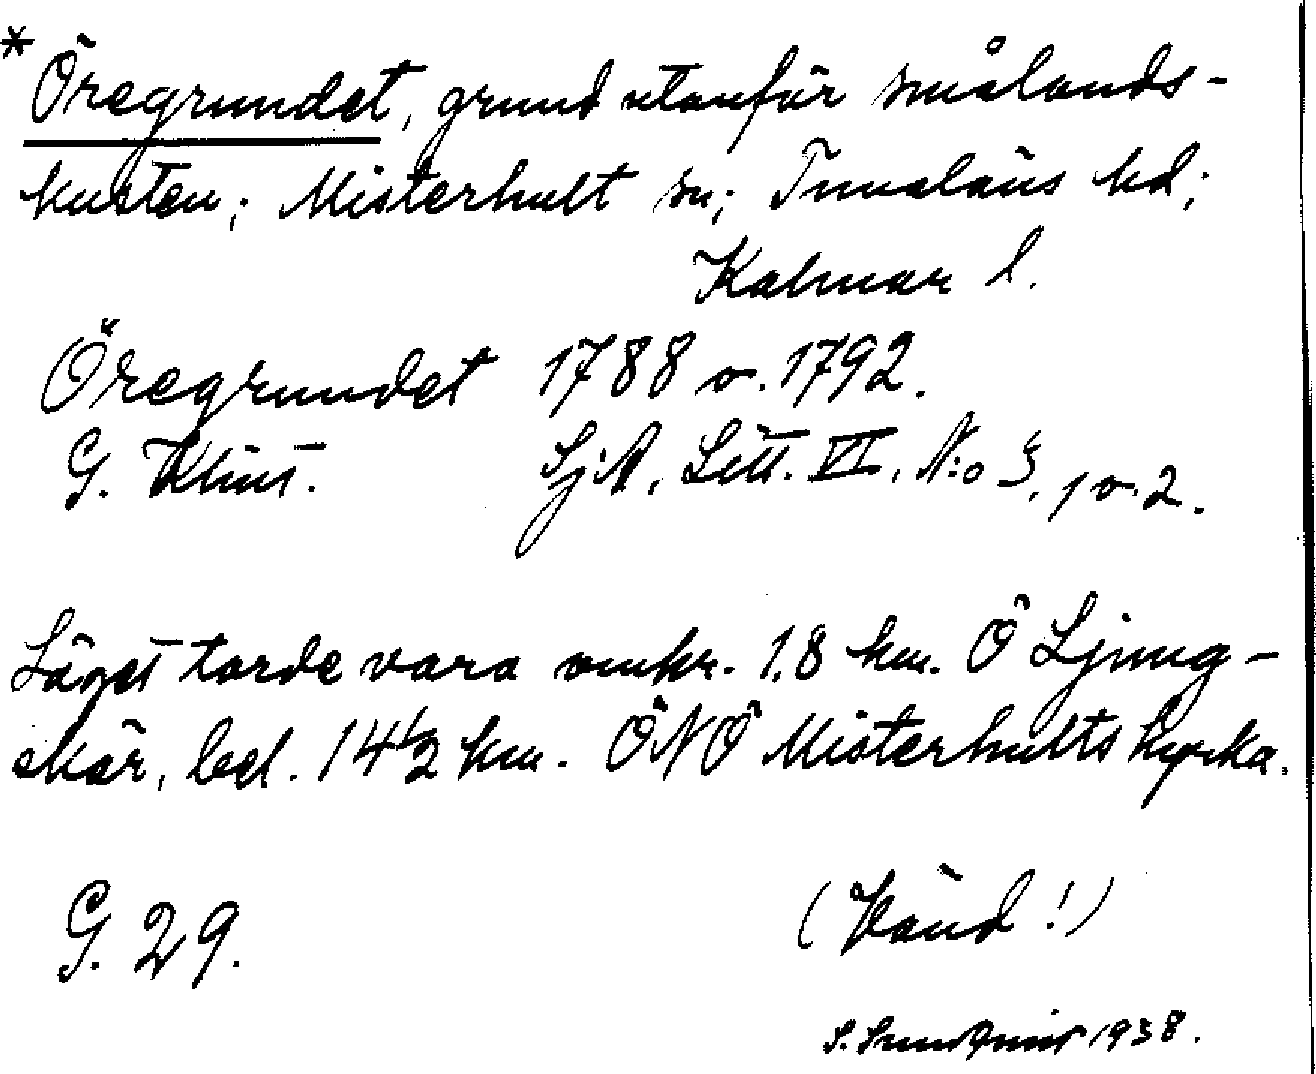 * Öregrundet, grund utanför smålands-
kusten; Misterhult sn; Tunaläns hd;
Kalmar l.
Öregrundet 1788 o. 1792.
G. Klint. Sj:A, Litt. VI, N:o 3, 1 o. 2.
Läget torde vara omkr. 1,8 km. Ö Ljung-
skär, bel. 14 1/2 km. ÖNÖ Misterhults kyrka.
G. 29. (Vänd!)
S. Sundqvist 1938.